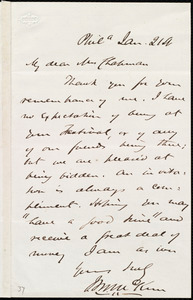 Phila Jan. 21st
My dear Mrs Chapman
Thank you for your
remembrance of me. I have
no expectation of being at
your Festival, or of any
of our friends being there;
but we are pleased at
being bidden. An invita-
tion is always a com-
pliment. Hoping you may
"have a good time" and
receive a great deal of
money I am as ever
Yours truly
J. M. McKim
37